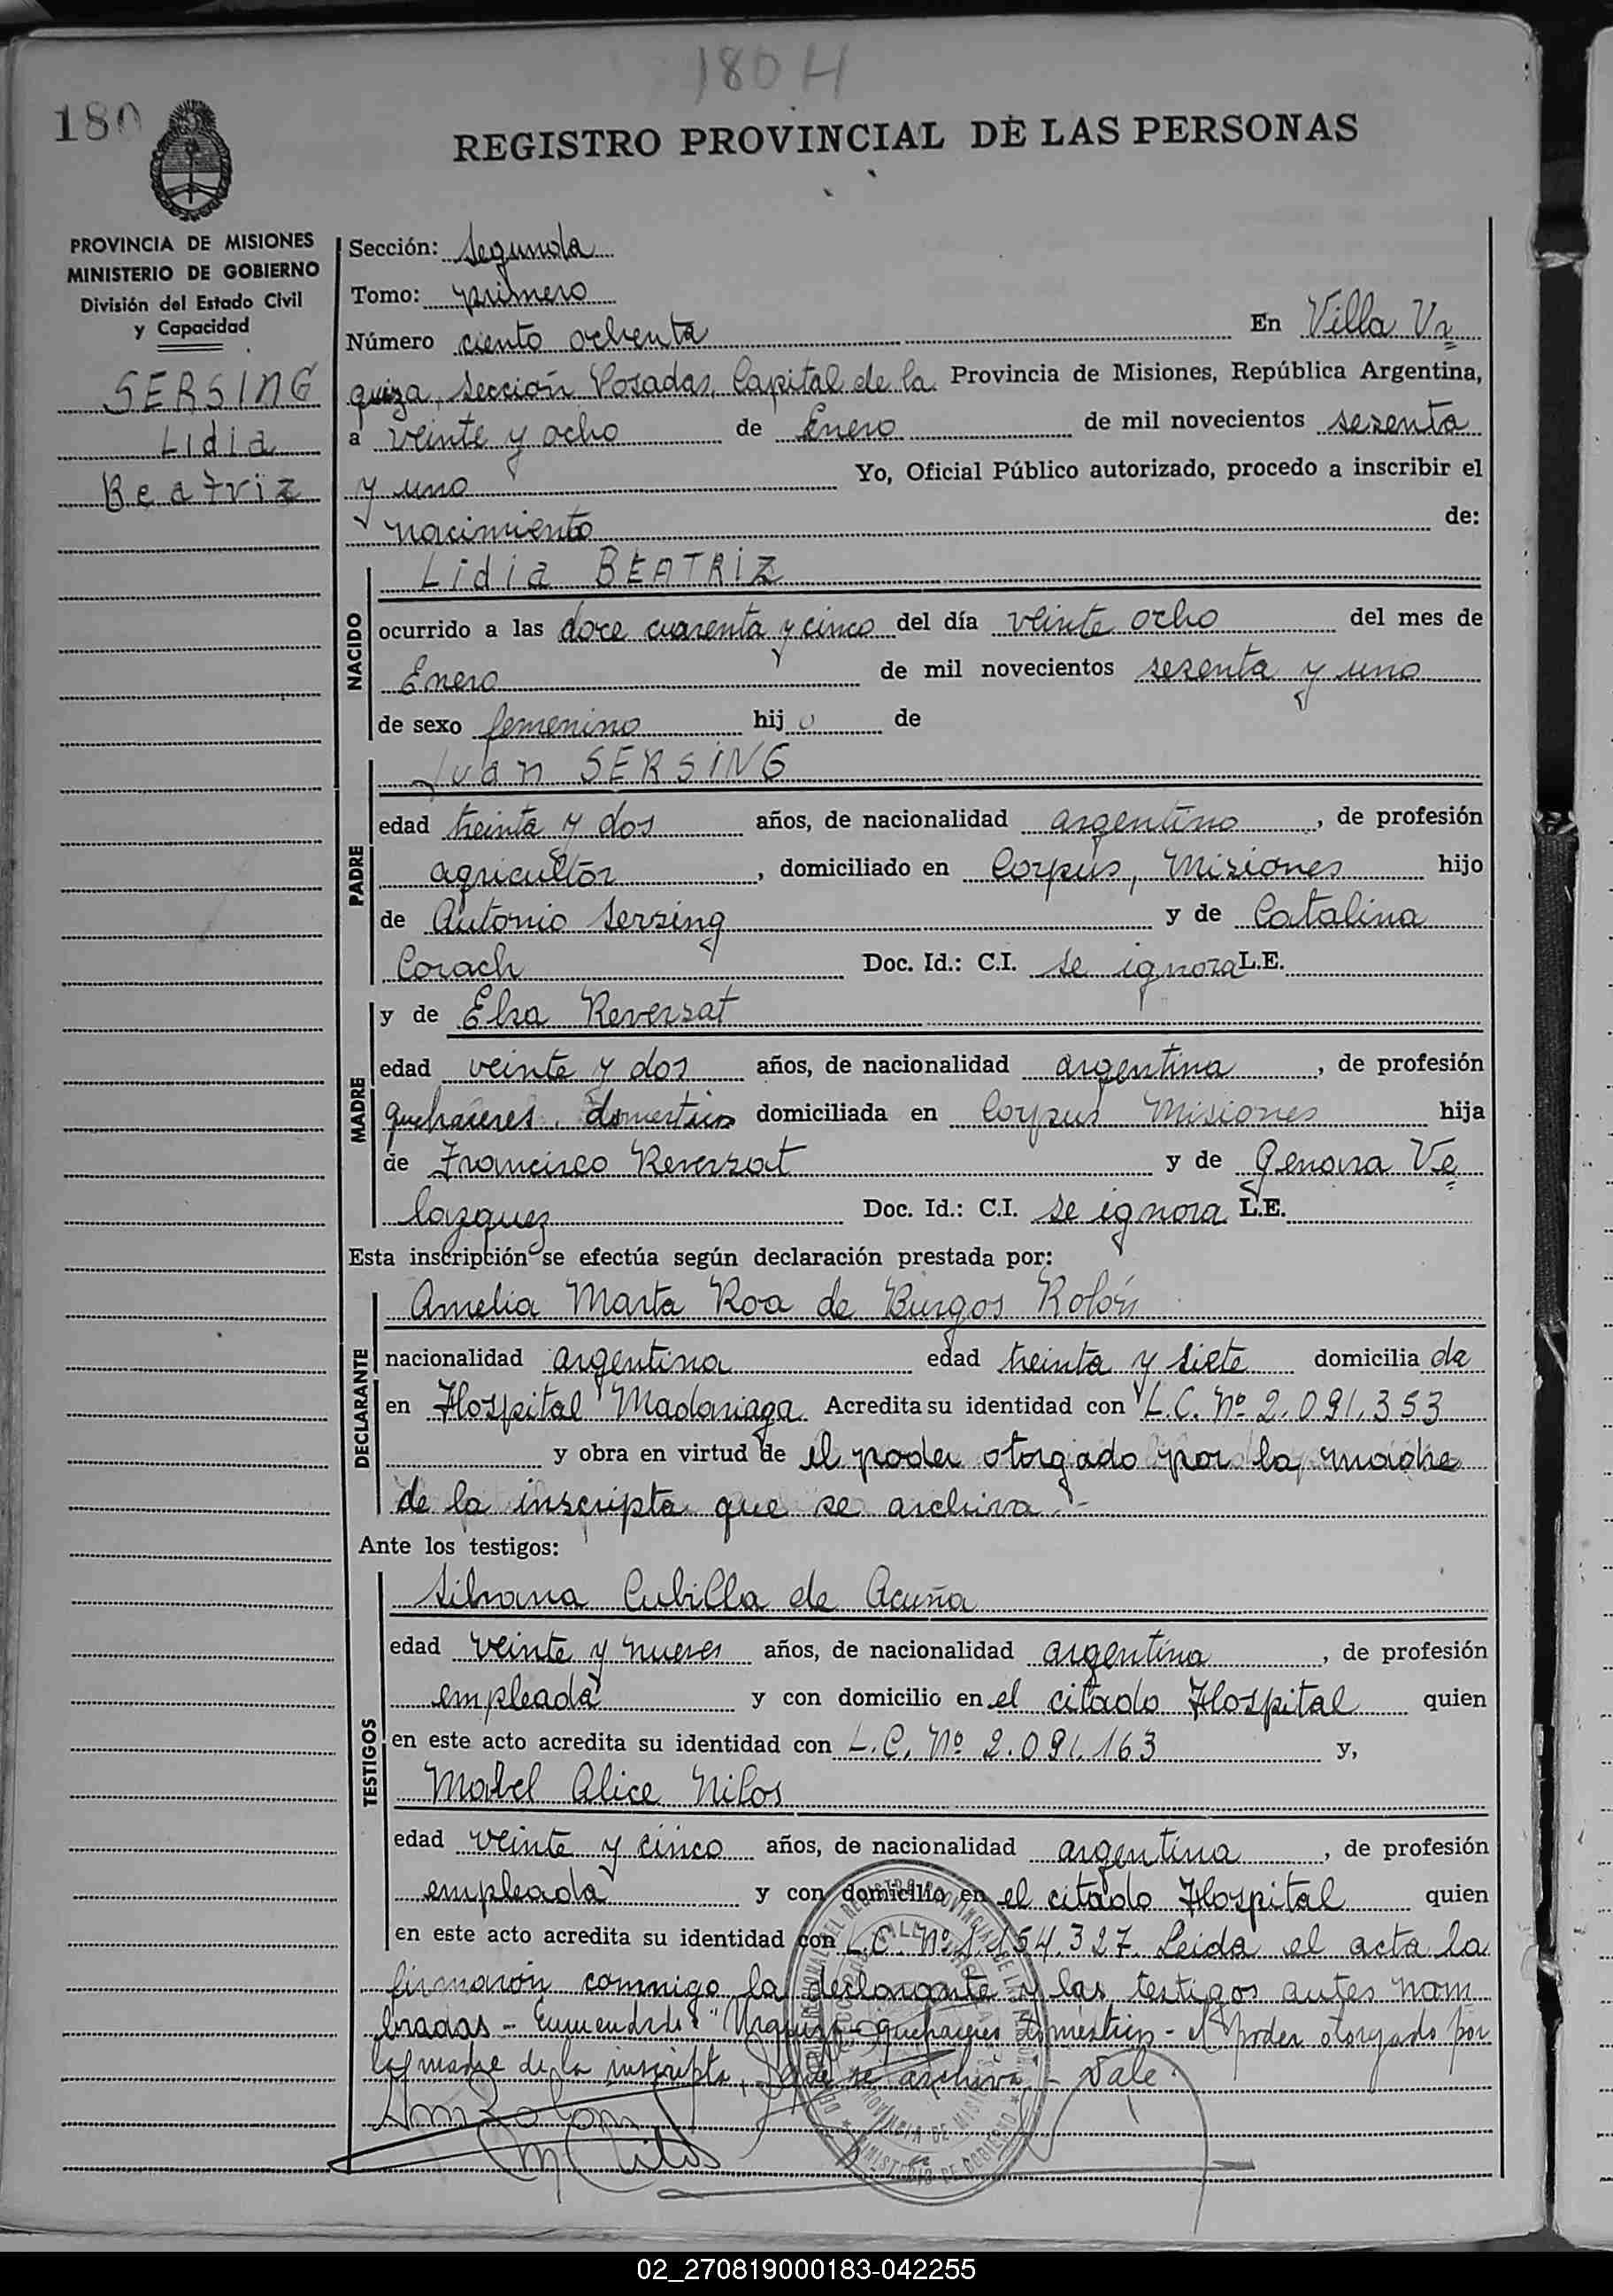 180 H
180
REGISTRO PROVINCIAL DE LAS PERSONAS
PROVINCIA DE MISIONES
MINISTERIO DE GOBIERNO
División del Estado Civil
y Capacidad
SERSING
Lidia
Beatriz
Sección: Segunda
Tomo: primero
Número ciento ochenta En Villa Ur
quiza, Sección Posadas, Capital de la Provincia de Misiones, República Argentina,
a veinte y ocho de Enero de mil novecientos sesenta
y uno Yo, Oficial Público autorizado, procedo a inscribir el
nacimiento de:
NACIDO
Lidia BEATRIZ
ocurrido a las doce cuarenta y cinco del día veinte ocho del mes de
Enero de mil novecientos sesenta y uno
de sexo femenino hij o de
PADRE
Juan SERSING
edad treinta y dos años, de nacionalidad argentino, de profesión
agricultor, domiciliado en Corpus, Misiones hijo
de Antonio Sersing y de Catalina
Corach Doc. Id.: C.I. se ignora L.E.
MADRE
y de Elsa Reversat
edad veinte y dos años, de nacionalidad argentina, de profesión
quehaceres domesticos domiciliada en Corpus Misiones hija
de Francisco Reversat y de Genara Ve
lazquez Doc. Id.: C.I. se ignora L.E.
Esta inscripción se efectúa según declaración prestada por:
DECLARANTE
Amelia Marta Roa de Burgos Rolón
nacionalidad argentina edad treinta y siete domicilia da
en Hospital Madariaga Acredita su identidad con L.C. Nº 2.091.353
y obra en virtud de el poder otorgado por la madre
de la inscripta que se archiva.-
Ante los testigos:
TESTIGOS
Silvana Cubilla de Acuña
edad veinte y nueve años, de nacionalidad argentina, de profesión
empleada y con domicilio en el citado Hospital quien
en este acto acredita su identidad con L.C. Nº 2.091.163 y,
Mabel Alice Nilos
edad veinte y cinco años, de nacionalidad argentina, de profesión
empleada y con domicilio en el citado Hospital quien
en este acto acredita su identidad con L.C. Nº 1.154.327 Leida el acta la
firmaron conmigo la declarante y las testigos antes nom
bradas - Enmendado: "Urquiza - quehaceres domesticos - el poder otorgado por
la madre de la inscripta, que se archiva - Vale.
02_270819000183-042255